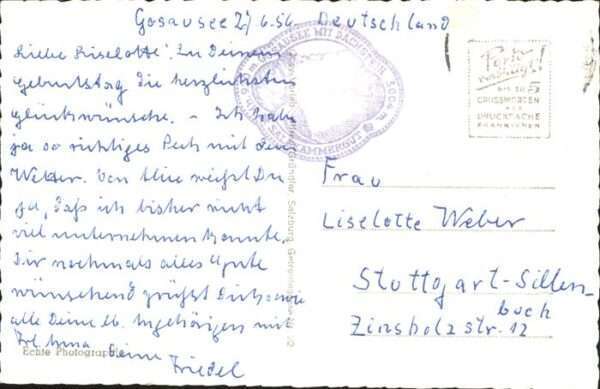 Gosausee 2/6.56 Deutschland
Liebe Liselotte! Zu Deinem
Geburtstag die herzlichsten
Glückwünsche. – Ich habe
ja so richtiges Pech mit dem
Wetter. Von Mir weißt Du
ja, daß ich bisher nicht
viel unternehmen konnte.
Dir nochmals alles Gute
wünschend grüßt Dich sowie
alle Deine lb. Angehörigen mit
Frl. Anna Deine
Friedel
GOSAUSEE MIT DACHSTEIN
SALZKAMMERGUT
Frau
Liselotte Weber
Stuttgart-Sillen-
buch
Zinsholzstr. 12
Echte Photographie
Salzburg
DRUCKSACHE
FRANKIEREN